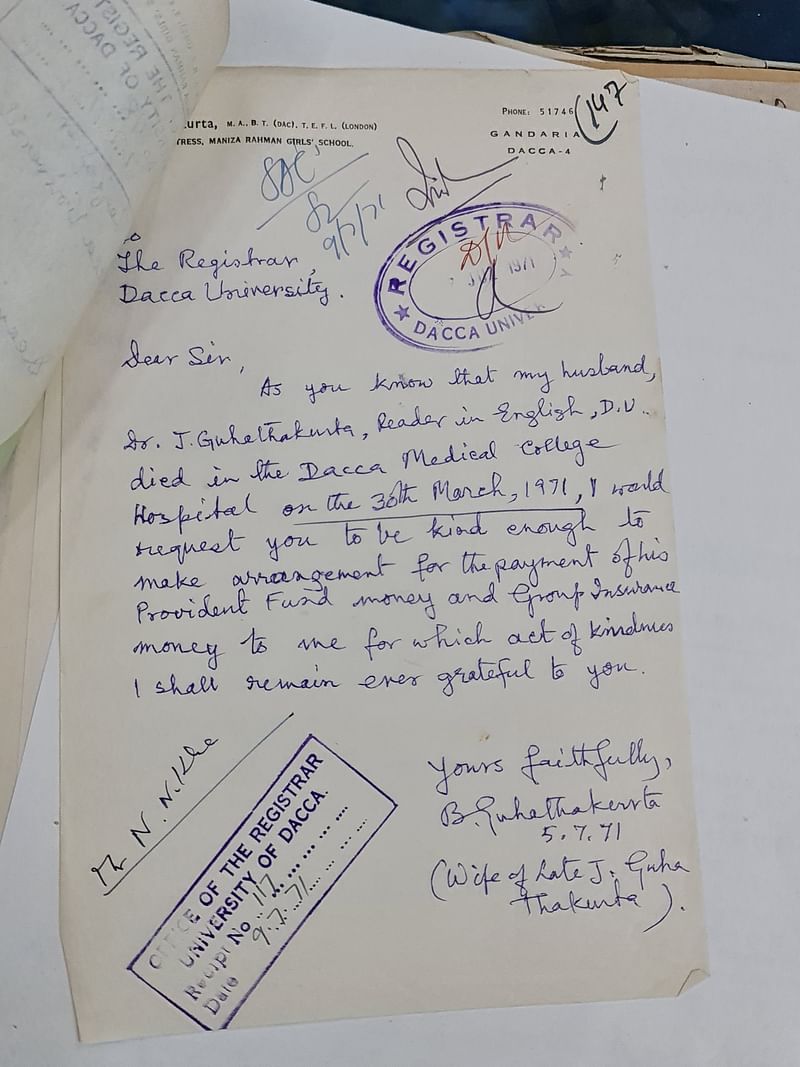 urta, M. A., B. T. (DAC), T. E. F. L. (LONDON)
TRESS, MANIZA RAHMAN GIRLS' SCHOOL.
PHONE: 51746
GANDARIA
DACCA-4
147
9/7/71
REGISTRAR
1971
DACCA UNIVER
The Registrar,
Dacca University.
Dear Sir,
As you know that my husband,
Dr. J. Guhathakurta, Reader in English, D.U.
died in the Dacca Medical College
Hospital on the 30th March, 1971, I would
request you to be kind enough to
make arrangement for the payment of his
Provident Fund money and Group Insurance
money to me for which act of kindness
I shall remain ever grateful to you.
Yours faithfully,
B. Guhathakurta
5.7.71
(Wife of Late J. Guha
Thakurta).
OFFICE OF THE REGISTRAR
UNIVERSITY OF DACCA.
Receipt No 117
Date 9.7.71